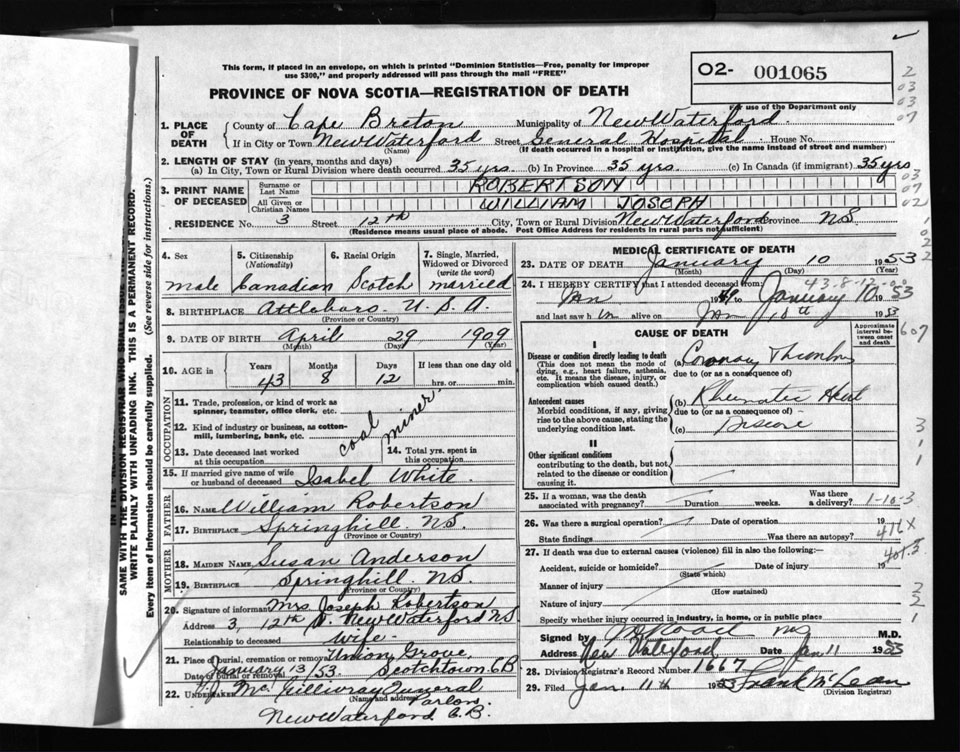 This form, if placed in an envelope, on which is printed "Dominion Statistics—Free, penalty for improper
use $300," and properly addressed will pass through the mail "FREE"
O2- 001065
For use of the Department only
PROVINCE OF NOVA SCOTIA—REGISTRATION OF DEATH
1. PLACE OF DEATH { County of Cape Breton Municipality of New Waterford
If in City or Town New Waterford Street General Hospital House No.
(Name) (If death occurred in a hospital or institution, give the name instead of street and number)
2. LENGTH OF STAY (in years, months and days)
(a) In City, Town or Rural Division where death occurred 35 yrs. (b) In Province 35 yrs. (c) In Canada (if immigrant) 35 yrs
3. PRINT NAME OF DECEASED { Surname or Last Name ROBERTSON
All Given or Christian Names WILLIAM JOSEPH
RESIDENCE No. 3 Street 12th City, Town or Rural Division New Waterford Province N.S.
(Residence means usual place of abode. Post Office Address for residents in rural parts not sufficient)
4. Sex 5. Citizenship (Nationality) 6. Racial Origin 7. Single, Married, Widowed or Divorced (write the word)
Male Canadian Scotch married
8. BIRTHPLACE Attleboro. U.S.A.
(Province or Country)
9. DATE OF BIRTH April 29 1909
(Month) (Day) (Year)
10. AGE in { Years Months Days If less than one day old
43 8 12 hrs. or min.
OCCUPATION
11. Trade, profession, or kind of work as spinner, teamster, office clerk, etc.
12. Kind of industry or business, as cotton-mill, lumbering, bank, etc.
coal miner
13. Date deceased last worked at this occupation 14. Total yrs. spent in this occupation
15. If married give name of wife or husband of deceased Isabel White
FATHER
16. Name William Robertson
17. Birthplace Springhill N.S.
(Province or Country)
MOTHER
18. Maiden Name Susan Anderson
19. Birthplace Springhill N.S.
(Province or Country)
20. Signature of informant Mrs. Joseph Robertson
Address 3, 12th St. New Waterford N.S
Relationship to deceased wife
21. Place of burial, cremation or removal Union Grove
Date of burial or removal January 13/53. Scotchtown C.B
22. Undertaker McGillivray Funeral Parlor
(Name and address)
New Waterford C.B.
MEDICAL CERTIFICATE OF DEATH
23. DATE OF DEATH January 10 1953
(Month) (Day) (Year)
24. I HEREBY CERTIFY that I attended deceased from:
Jan 19 to January 10 1953
and last saw him alive on Jan 10th 1953
CAUSE OF DEATH
Approximate interval between onset and death
I
Disease or condition directly leading to death
(This does not mean the mode of dying, e.g., heart failure, asthenia, etc. It means the disease, injury, or complication which caused death.)
(a) Coronary Thrombos
due to (or as a consequence of)
Antecedent causes
Morbid conditions, if any, giving rise to the above cause, stating the underlying condition last.
(b) Rheumatic Heart
due to (or as a consequence of)
(c) Disease
II
Other significant conditions
contributing to the death, but not related to the disease or condition causing it.
25. If a woman, was the death associated with pregnancy? Duration weeks. Was there a delivery?
1-10-3
26. Was there a surgical operation? Date of operation 19
State findings Was there an autopsy?
416X
27. If death was due to external causes (violence) fill in also the following:—
Accident, suicide or homicide? Date of injury 19
(State which)
Manner of injury
(How sustained)
Nature of injury
Specify whether injury occurred in industry, in home, or in public place
Signed by M.D.
Address New Waterford Date Jan 11 1953
28. Division Registrar's Record Number 1667
29. Filed Jan. 11th 1953 Frank McLean
(Division Registrar)
WRITE PLAINLY WITH UNFADING INK. THIS IS A PERMANENT RECORD.
Every item of information should be carefully supplied. (See reverse side for instructions.)